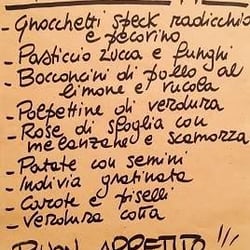 - Gnocchetti speck radicchio
e pecorino
- Pasticcio zucca e funghi
- Bocconcini di pollo al
limone e rucola
- Polpettine di verdura
- Rose di sfoglia con
melanzane e scamorza
- Patate con semini
- Indivia gratinata
- Carote e piselli
- Verdura cotta
BUON APPETITO!!!